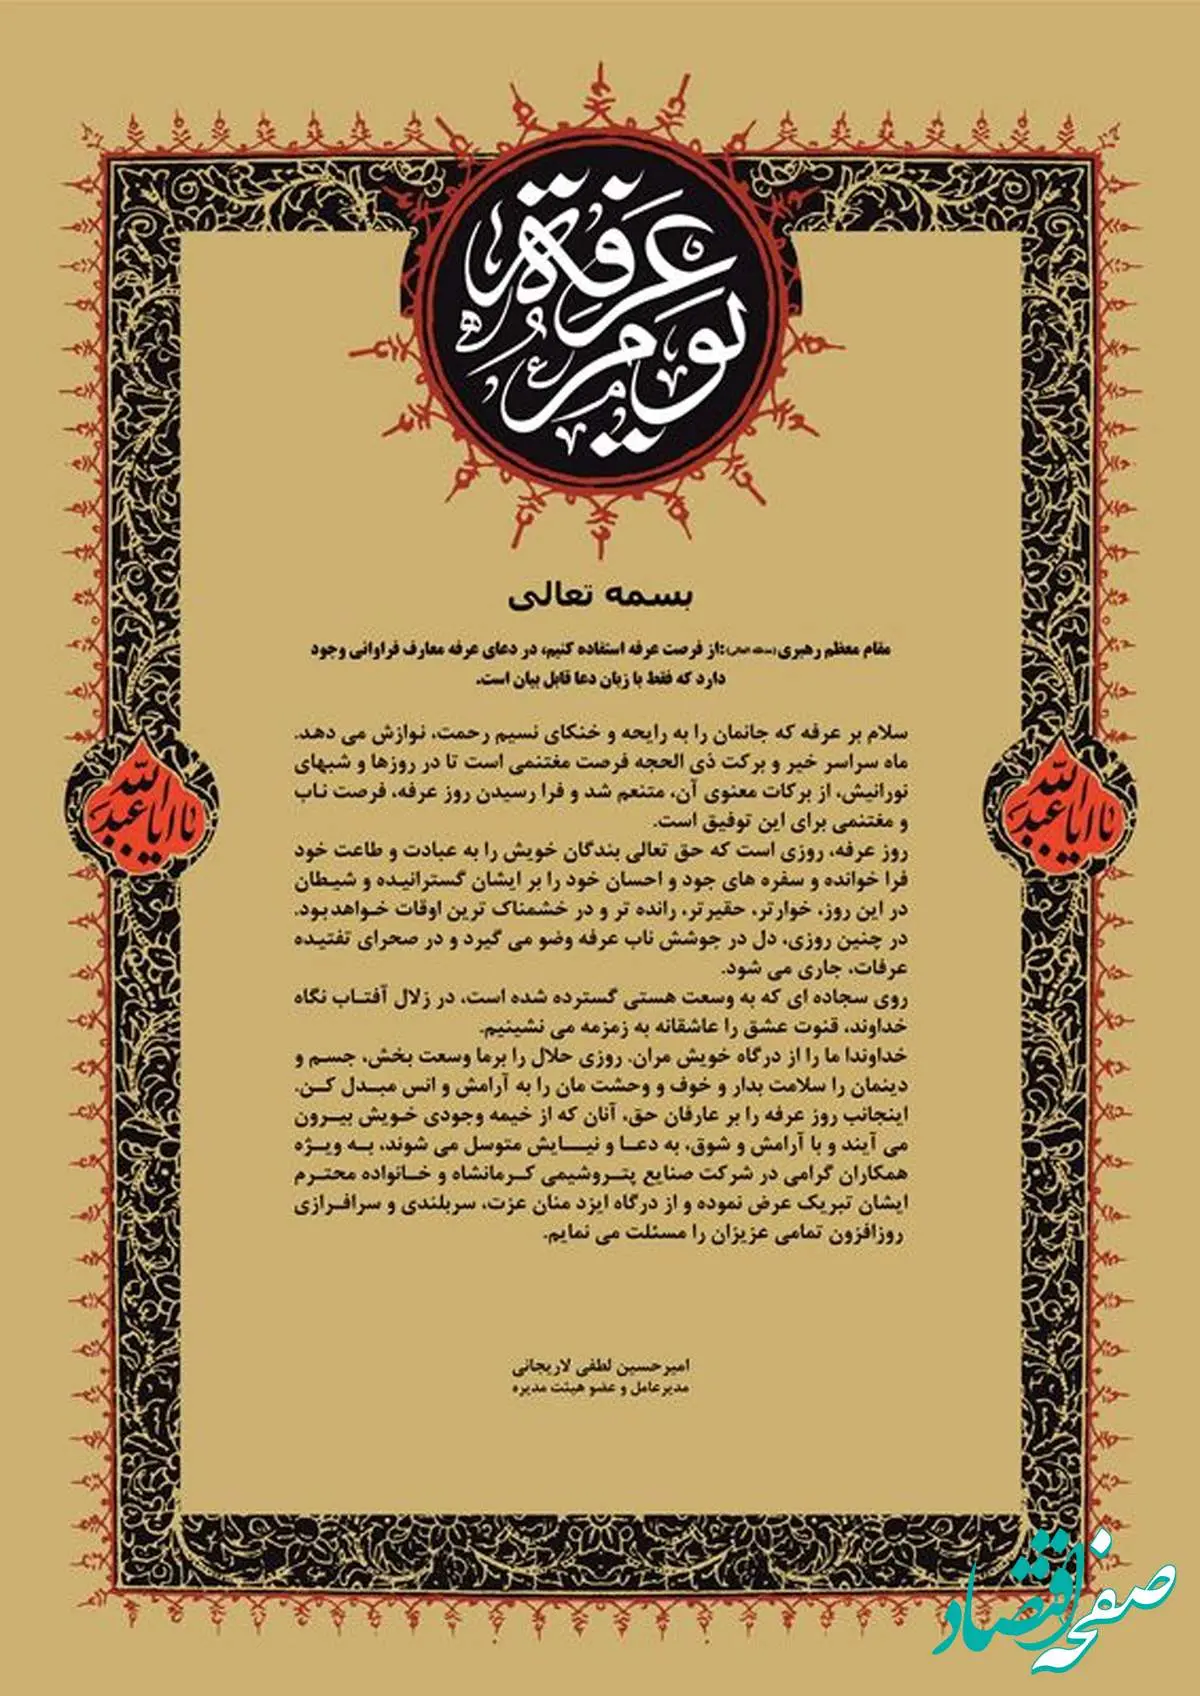 یوم عرفة
بسمه تعالی
مقام معظم رهبری(مدظله العالی):از فرصت عرفه استفاده کنیم، در دعای عرفه معارف فراوانی وجود
دارد که فقط با زبان دعا قابل بیان است.
سلام بر عرفه که جانمان را به رایحه و خنکای نسیم رحمت، نوازش می دهد.
ماه سراسر خیر و برکت ذی الحجه فرصت مغتنمی است تا در روزها و شبهای
نورانیش، از برکات معنوی آن، متنعم شد و فرا رسیدن روز عرفه، فرصت ناب
و مغتنمی برای این توفیق است.
روز عرفه، روزی است که حق تعالی بندگان خویش را به عبادت و طاعت خود
فرا خوانده و سفره های جود و احسان خود را بر ایشان گسترانیده و شیطان
در این روز، خوارتر، حقیرتر، رانده تر و در خشمناک ترین اوقات خواهدبود.
در چنین روزی، دل در جوشش ناب عرفه وضو می گیرد و در صحرای تفتیده
عرفات، جاری می شود.
روی سجاده ای که به وسعت هستی گسترده شده است، در زلال آفتاب نگاه
خداوند، قنوت عشق را عاشقانه به زمزمه می نشینیم.
خداوندا ما را از درگاه خویش مران. روزی حلال را برما وسعت بخش، جسم و
دینمان را سلامت بدار و خوف و وحشت مان را به آرامش و انس مبدل کن.
اینجانب روز عرفه را بر عارفان حق، آنان که از خیمه وجودی خویش بیرون
می آیند و با آرامش و شوق، به دعا و نیایش متوسل می شوند، به ویژه
همکاران گرامی در شرکت صنایع پتروشیمی کرمانشاه و خانواده محترم
ایشان تبریک عرض نموده و از درگاه ایزد منان عزت، سربلندی و سرافرازی
روزافزون تمامی عزیزان را مسئلت می نمایم.
یا اباعبدالله
یا اباعبدالله
امیرحسین لطفی لاریجانی
مدیرعامل و عضو هیئت مدیره
صفحه اقتصاد